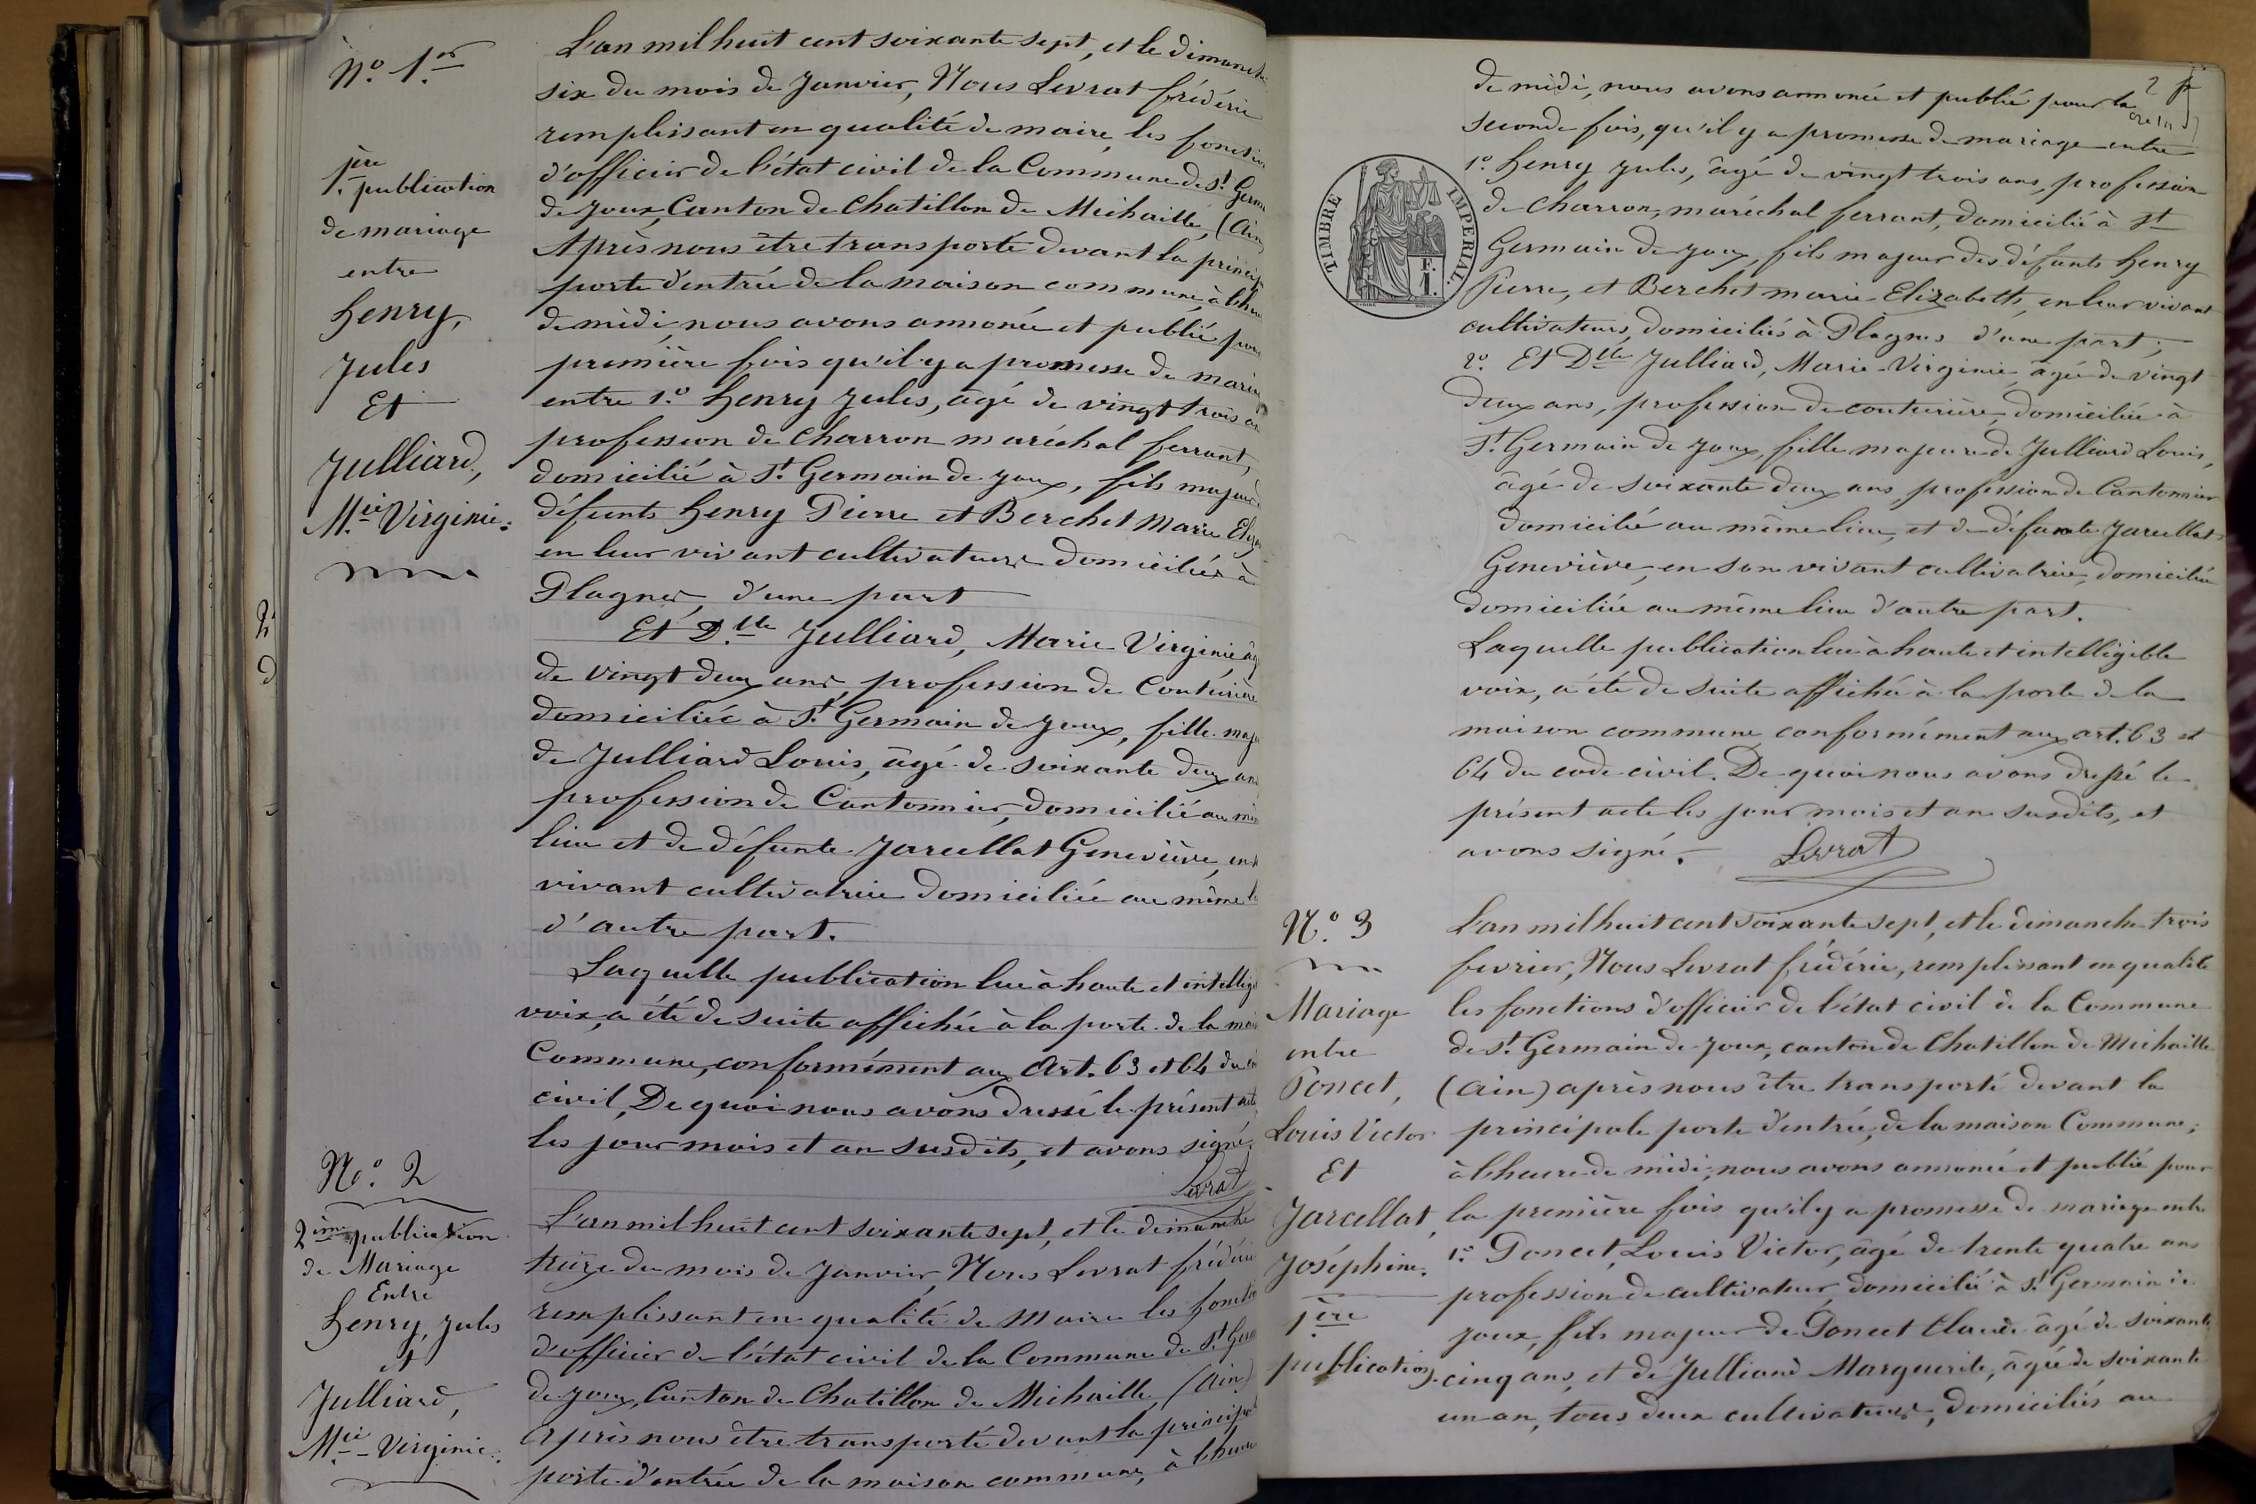 N.o 1.er
1.ère publication
de mariage
entre
henry,
Jules
Et
Julliard,
M.ie Virginie.
L'an mil huit cent soixante sept, et le dimanche
six du mois de Janvier, Nous Levrat frédéric
remplissant en qualité de maire, les fonctio
d'officier de l'état civil de la Commune de St Germ
de Joux, Canton de Chatillon de Michaille, (Ain)
Après nous être transporté devant la princip
porte d'entrée de la maison commune, à l'heu
de midi, nous avons annoncé et publié pou
première fois qu'il y a promesse de maria
entre 1.o henry Jules, âgé de vingt trois an
profession de Charron maréchal ferrant,
domicilié à St Germain de Joux, fils majeur
défunts henry Pierre et Berchet Marie Eliza
en leur vivant cultivateurs domiciliés à
Plagnes, d'une part
Et D.lle Julliard, Marie Virginie, âg
de vingt deux ans, profession de Couturière
domiciliée à St Germain de Joux, fille maje
de Julliard Louis, âgé de soixante deux ans
profession de Cantonnier, domicilié au mêm
lieu et de défunte Jarcellat Geneviève, en
vivant cultivatrice domiciliée au même l
d'autre part.
Laquelle publication lue à haute et intellig
voix, a été de suite affichée à la porte de la mais
Commune, conformément aux Art. 63 et 64 du co
civil, De quoi nous avons dressé le présent acte
les jour mois et an susdits, et avons signé.
Levrat
N.o 2
2ème publication
de Mariage
Entre
henry, Jules
et
Julliard,
M.ie Virginie.
L'an mil huit cent soixante sept, et le dimanche
treize du mois de Janvier, Nous Levrat frédéric
remplissant en qualité de Maire les foncti
d'officier de l'état civil de la Commune de St Germ
de Joux, Canton de Chatillon de Michaille, (Ain)
Après nous être transporté devant la principale
porte d'entrée de la maison commune, à l'heure
2
de midi, nous avons annoncé et publié pour la
seconde fois, qu'il y a promesse de mariage entre
1.o henry Jules, âgé de vingt trois ans, profession
de Charron, maréchal ferrant, domicilié à St
Germain de Joux, fils majeur des défunts henry
Pierre, et Berchet marie Elizabeth, en leur vivant
cultivateurs, domiciliés à Plagnes d'une part;
2.o Et D.lle Julliard, Marie-Virginie, âgée de vingt
deux ans, profession de couturière, domiciliée à
St Germain de Joux, fille majeure de Julliard Louis,
âgé de soixante deux ans, profession de Cantonnier
domicilié au même lieu, et de défunte Jarcellat
Geneviève, en son vivant cultivatrice, domiciliée
domiciliée au même lieu d'autre part.
Laquelle publication lue à haute et intelligible
voix, a été de suite affiché à la porte de la
maison commune, conformément aux art. 63 et
64 du code civil. De quoi nous avons dressé le
présent acte les jour mois et an susdits, et
avons signé. Levrat
TIMBRE IMPERIAL.
F.
1.
N.o 3
Mariage
entre
Poncet,
Louis Victor
Et
Jarcellat,
Joséphine.
1ère
publication.
L'an mil huit cent soixante sept, et le dimanche trois
fevrier, Nous Levrat frédéric, remplissant en qualité
les fonctions d'officier de l'état civil de la Commune
de St Germain de Joux, canton de Chatillon de Michaille
(Ain) après nous être transporté devant la
principale porte d'entrée, de la maison Commune,
à l'heure de midi, nous avons annoncé et publié pour
la première fois qu'il y a promesse de mariage entre
1.o Poncet, Louis Victor, âgé de trente quatre ans
profession de cultivateur, domicilié à St Germain de
Joux, fils majeur de Poncet Claude âgé de soixante
cinq ans, et de Julliard Marguerite, âgée de soixante
un an, tous deux cultivateurs, domiciliés au